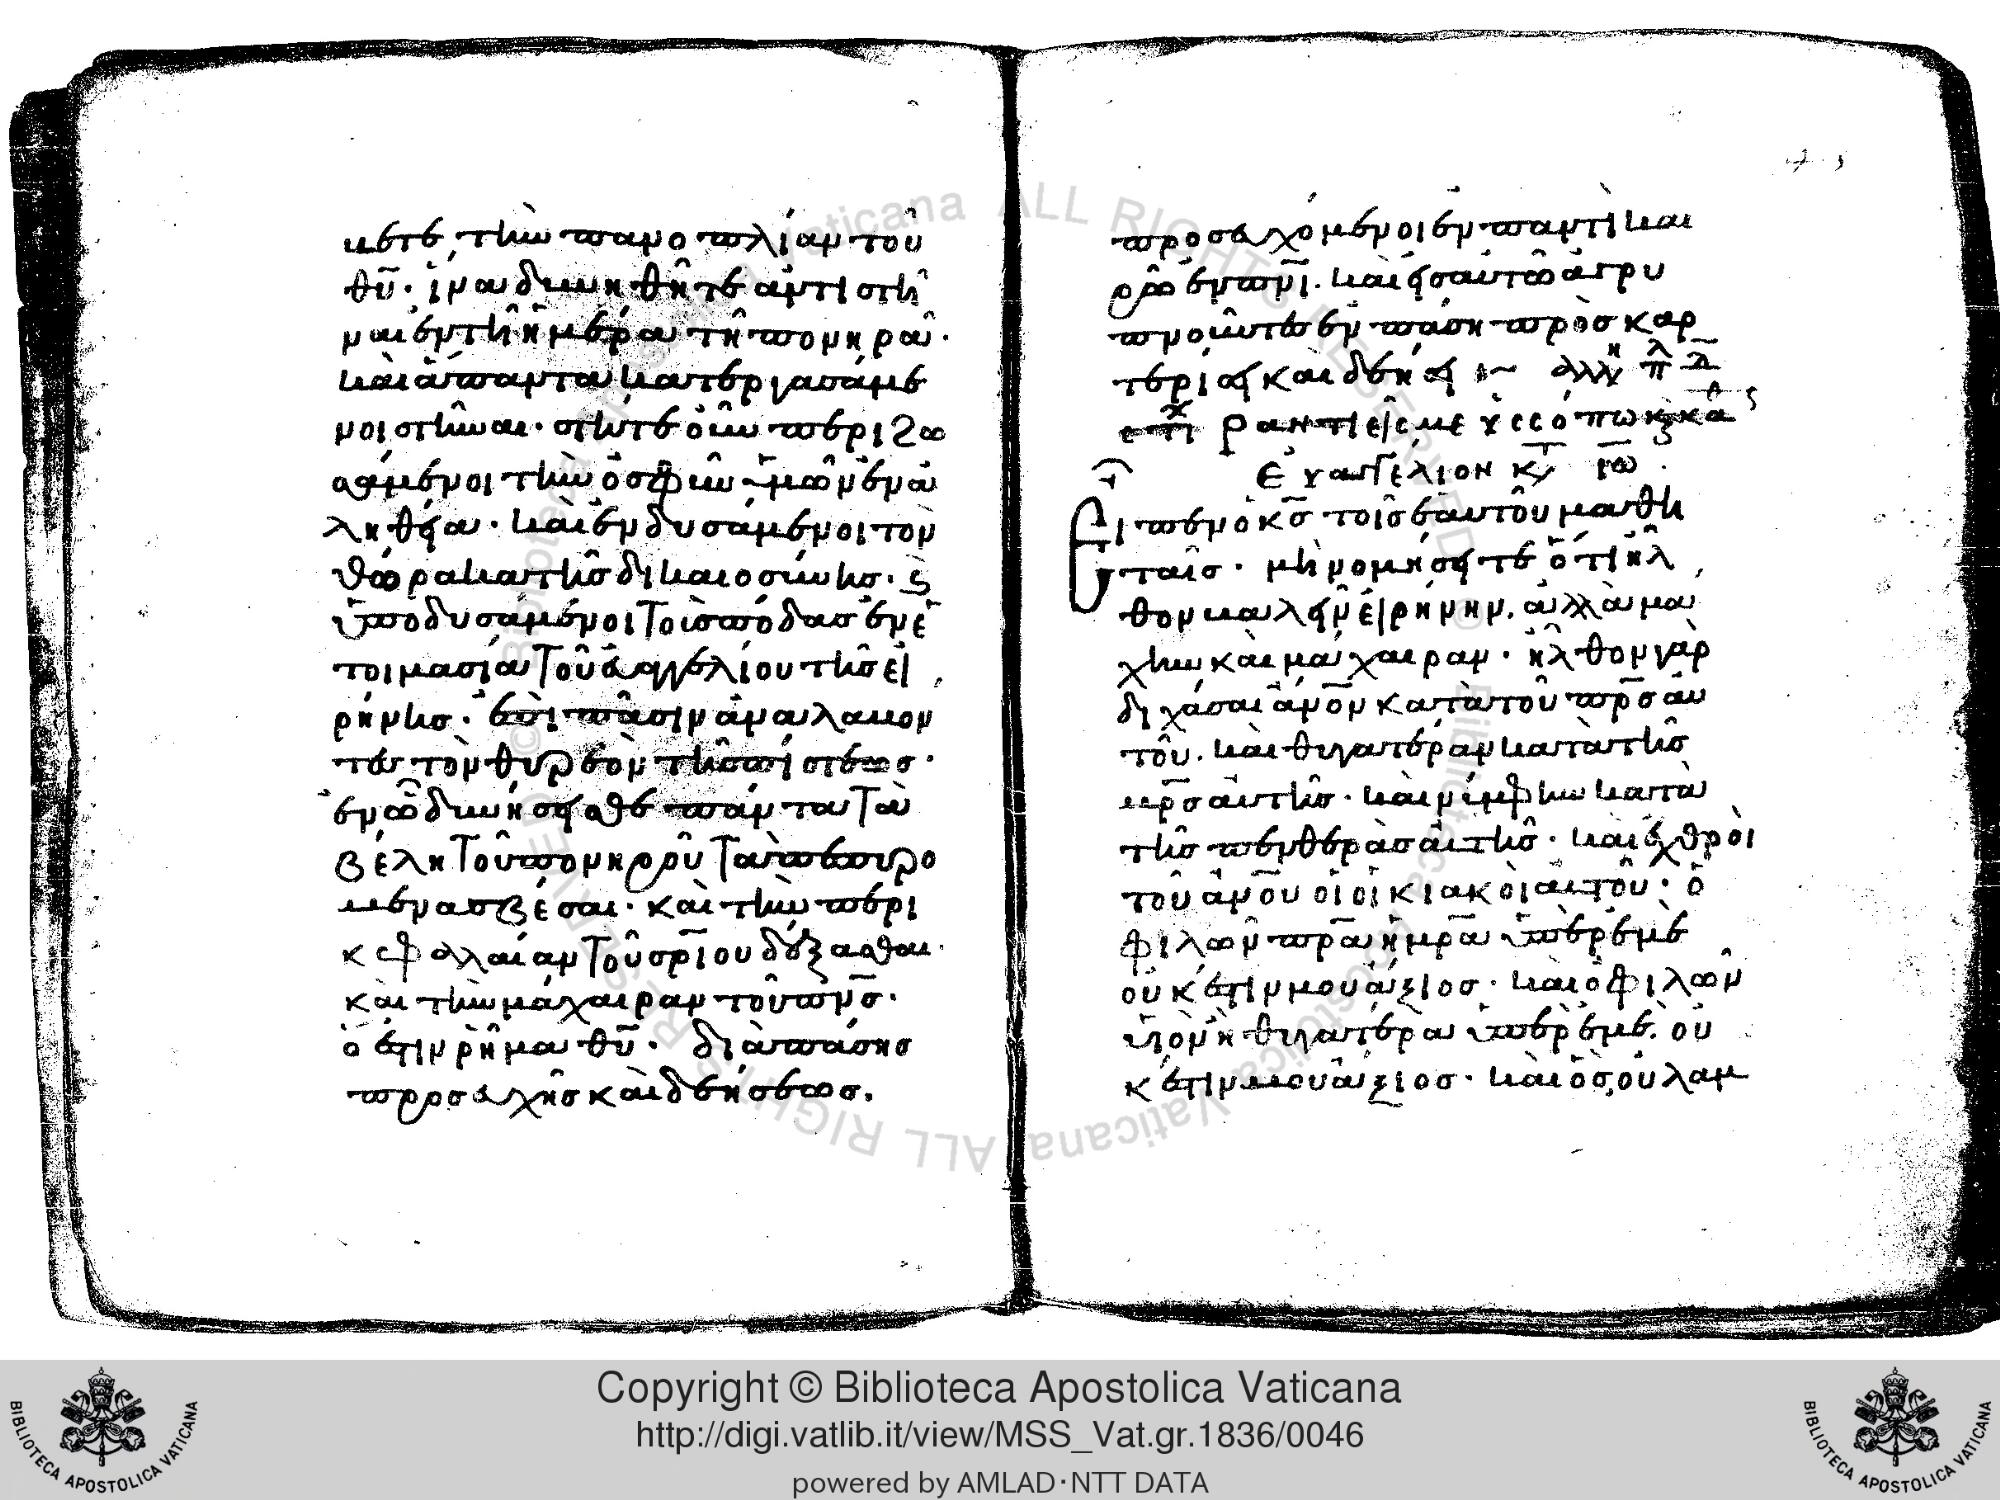 βετε τὴν πανοπλίαν τοῦ
θῦ· ἵνα δυνηθῆτε ἀντιστῆ
ναι ἐν τῆ ἡμέρα τῆ πονηρᾶ·
καὶ ἅπαντα κατεργασάμε
νοι στῆναι· στῆτε οὖν περιζω
σάμενοι τὴν ὀσφῦν ὑμῶν ἐν ἀ
ληθεία· καὶ ἐνδυσάμενοι τὸν
θώρακα τῆς δικαιοσύνης· ϛ
ὑποδυσάμενοι τοὺς πόδας ἐν ἑ
τοιμασία τοῦ εὐαγγελίου τῆς εἰ
ρήνης· ἐπὶ πᾶσιν ἀναλαβόν
τες τὸν θυρεὸν τῆς πίστεως·
ἐν ῶ δυνήσεσθε πάντα τὰ
βέλη τοῦ πονηροῦ τὰ πεπυρο
μένα σβέσαι· καὶ τὴν περι
κεφαλλαίαν τοῦ σρίου δέξασθαι·
καὶ τὴν μάχαιραν τοῦ πνς·
ὅ ἐστιν ρῆμα θῦ· διὰ πάσης
προσευχῆς καὶ δεήσεως.
προσευχόμενοι ἐν παντὶ και
ρῶ ἐν πνι. καὶ εἰς αὐτῶ ἀγρυ
πνοῦντες ἐν πάση προσκαρ
τερία καὶ δεήσει
ραντιεῖς με ὑσσόπω κ κα
Εὐαγγέλιον κτ
Εἶπεν ὁ κς τοῖς ἑαυτοῦ μαθη
ταῖς· μὴ νομήσειτε ὅτι ἦλ
θον βαλεῖν εἰρήνην. ἀλλὰ μα
χην καὶ μάχαιραν· ἦλθον γὰρ
διχάσαι ἄνον κατὰ τοῦ πρς αὐ
τοῦ. καὶ θυγατέραν κατὰ τῆς
μρς αὐτῆς· καὶ νύμφην κατὰ
τῆς πενθερᾶς αὐτῆς· καὶ ἐχθροὶ
τοῦ ἀνου οἱ οἰκιακοὶ αὐτοῦ· ὁ
φιλῶν πρα ἢ μρα ὑπὲρ ἐμὲ
οὐκ ἔστιν μου ἄξιος· καὶ ὁ φιλῶν
υἱὸν ἢ θυγατέρα ὑπὲρ ἐμέ. οὐ
κ ἔστιν μου ἄξιος· καὶ ὃς οὐ λαμ
Copyright © Biblioteca Apostolica Vaticana
http://digi.vatlib.it/view/MSS_Vat.gr.1836/0046
powered by AMLAD·NTT DATA
BIBLIOTECA APOSTOLICA VATICANA
BIBLIOTECA APOSTOLICA VATICANA